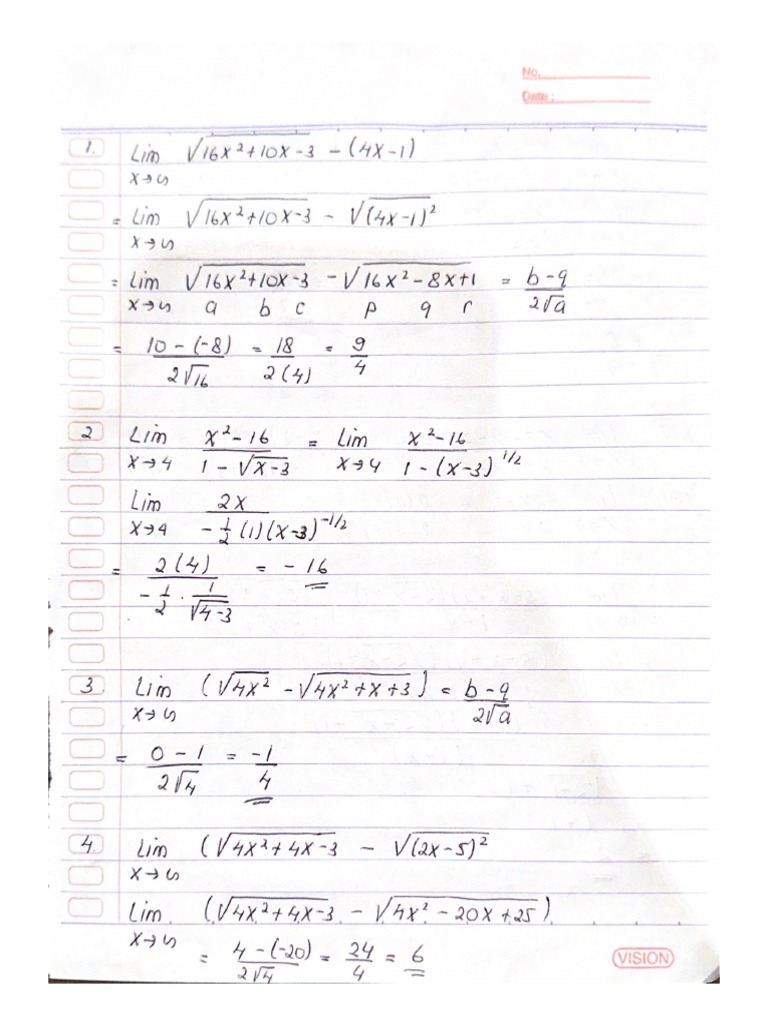 No.
Date :
1. Lim √(16x²+10x-3) - (4x-1)
x→∞
= Lim √(16x²+10x-3) - √((4x-1)²)
x→∞
= Lim √(16x²+10x-3) - √(16x²-8x+1) = (b-q)/(2√a)
x→∞ a b c p q r
= (10-(-8))/(2√16) = 18/(2(4)) = 9/4
2 Lim (x²-16)/(1-√(x-3)) = Lim (x²-16)/(1-(x-3)^(1/2))
x→4 x→4
Lim 2x/(-1/2 (1)(x-3)^(-1/2))
x→4
= 2(4)/(-1/2 · 1/√(4-3)) = -16
3. Lim (√(4x²) - √(4x²+x+3)) = (b-q)/(2√a)
x→∞
= (0-1)/(2√4) = -1/4
4. Lim (√(4x²+4x-3) - √((2x-5)²)
x→∞
Lim (√(4x²+4x-3) - √(4x²-20x+25))
x→∞
= (4-(-20))/(2√4) = 24/4 = 6
VISION